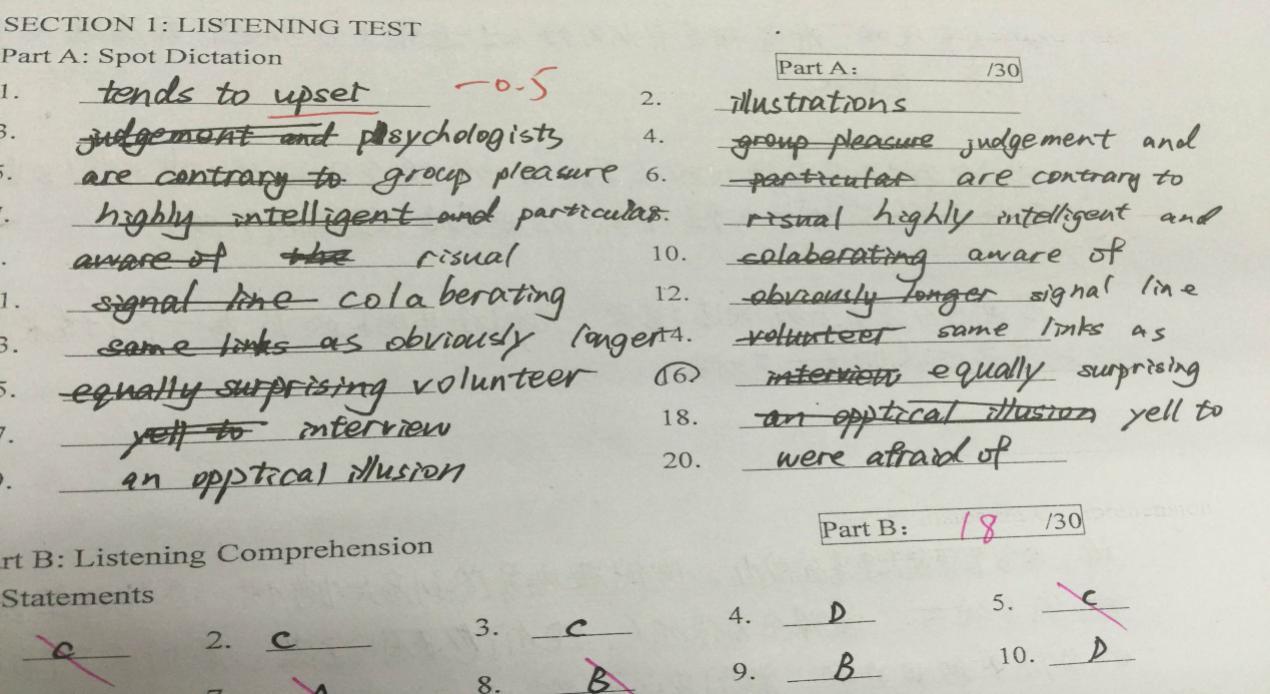 SECTION 1: LISTENING TEST
Part A: Spot Dictation
Part A: /30
1. tends to upset -0.5 2. illustrations
3. judgement and psychologists 4. group pleasure judgement and
5. are contrary to group pleasure 6. particular are contrary to
highly intelligent and particular 8. risual highly intelligent and
aware of the risual 10. colaberating aware of
1. signal line colaberating 12. obviously longer signal line
3. same links as obviously longer 14. volunteer same links as
5. equally surprising volunteer 16) interview equally surprising
7. yell to interview 18. an opptical illusion yell to
an opptical illusion 20. were afraid of
Part B: 18 /30
rt B: Listening Comprehension
Statements
C 2. C 3. C 4. D 5. C
8. B 9. B 10. D